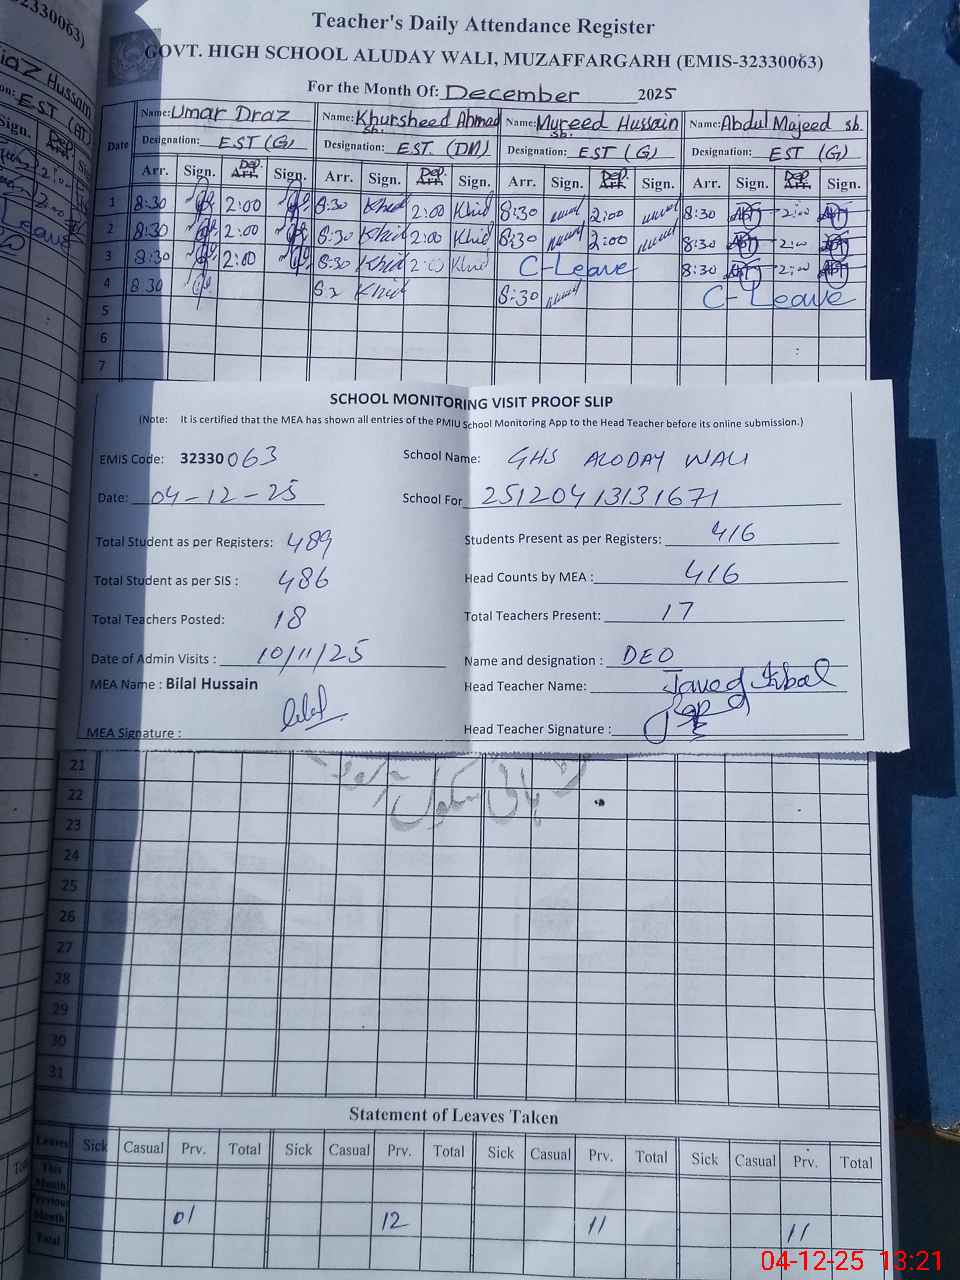 Teacher's Daily Attendance Register
GOVT. HIGH SCHOOL ALUDAY WALI, MUZAFFARGARH (EMIS-32330063)
For the Month Of: December 2025
Date Name: Umar Draz Name: Khursheed Ahmad sb. Name: Mureed Hussain sb. Name: Abdul Majeed sb.
Designation: EST (G) Designation: EST. (DM) Designation: EST (G) Designation: EST (G)
Arr. Sign. Dep. Sign. Arr. Sign. Dep. Sign. Arr. Sign. Dep. Sign. Arr. Sign. Dep. Sign.
1 8:30 2:00 8:30 Khid 2:00 Khid 8:30 2:00 8:30 2:00
2 8:30 2:00 8:30 Khid 2:00 Khid 8:30 2:00 8:30 2:00
3 8:30 2:00 8:30 Khid 2:00 Khid C-Leave 8:30 2:00
4 8:30 Khid 8:30 C-Leave
5
6
7
SCHOOL MONITORING VISIT PROOF SLIP
(Note: It is certified that the MEA has shown all entries of the PMIU School Monitoring App to the Head Teacher before its online submission.)
EMIS Code: 32330063 School Name: GHS ALODAY WALI
Date: 04-12-25 School For 25120413131671
Total Student as per Registers: 489 Students Present as per Registers: 416
Total Student as per SIS : 486 Head Counts by MEA : 416
Total Teachers Posted: 18 Total Teachers Present: 17
Date of Admin Visits : 10/11/25 Name and designation : DEO
MEA Name : Bilal Hussain Head Teacher Name: Javed Iqbal
MEA Signature : Head Teacher Signature :
21
22
23
24
25
26
27
28
29
30
31
Statement of Leaves Taken
Leaves Sick Casual Prv. Total Sick Casual Prv. Total Sick Casual Prv. Total Sick Casual Prv. Total
This Month
Previous Month 01 12 11 11
Total
04-12-25 13:21